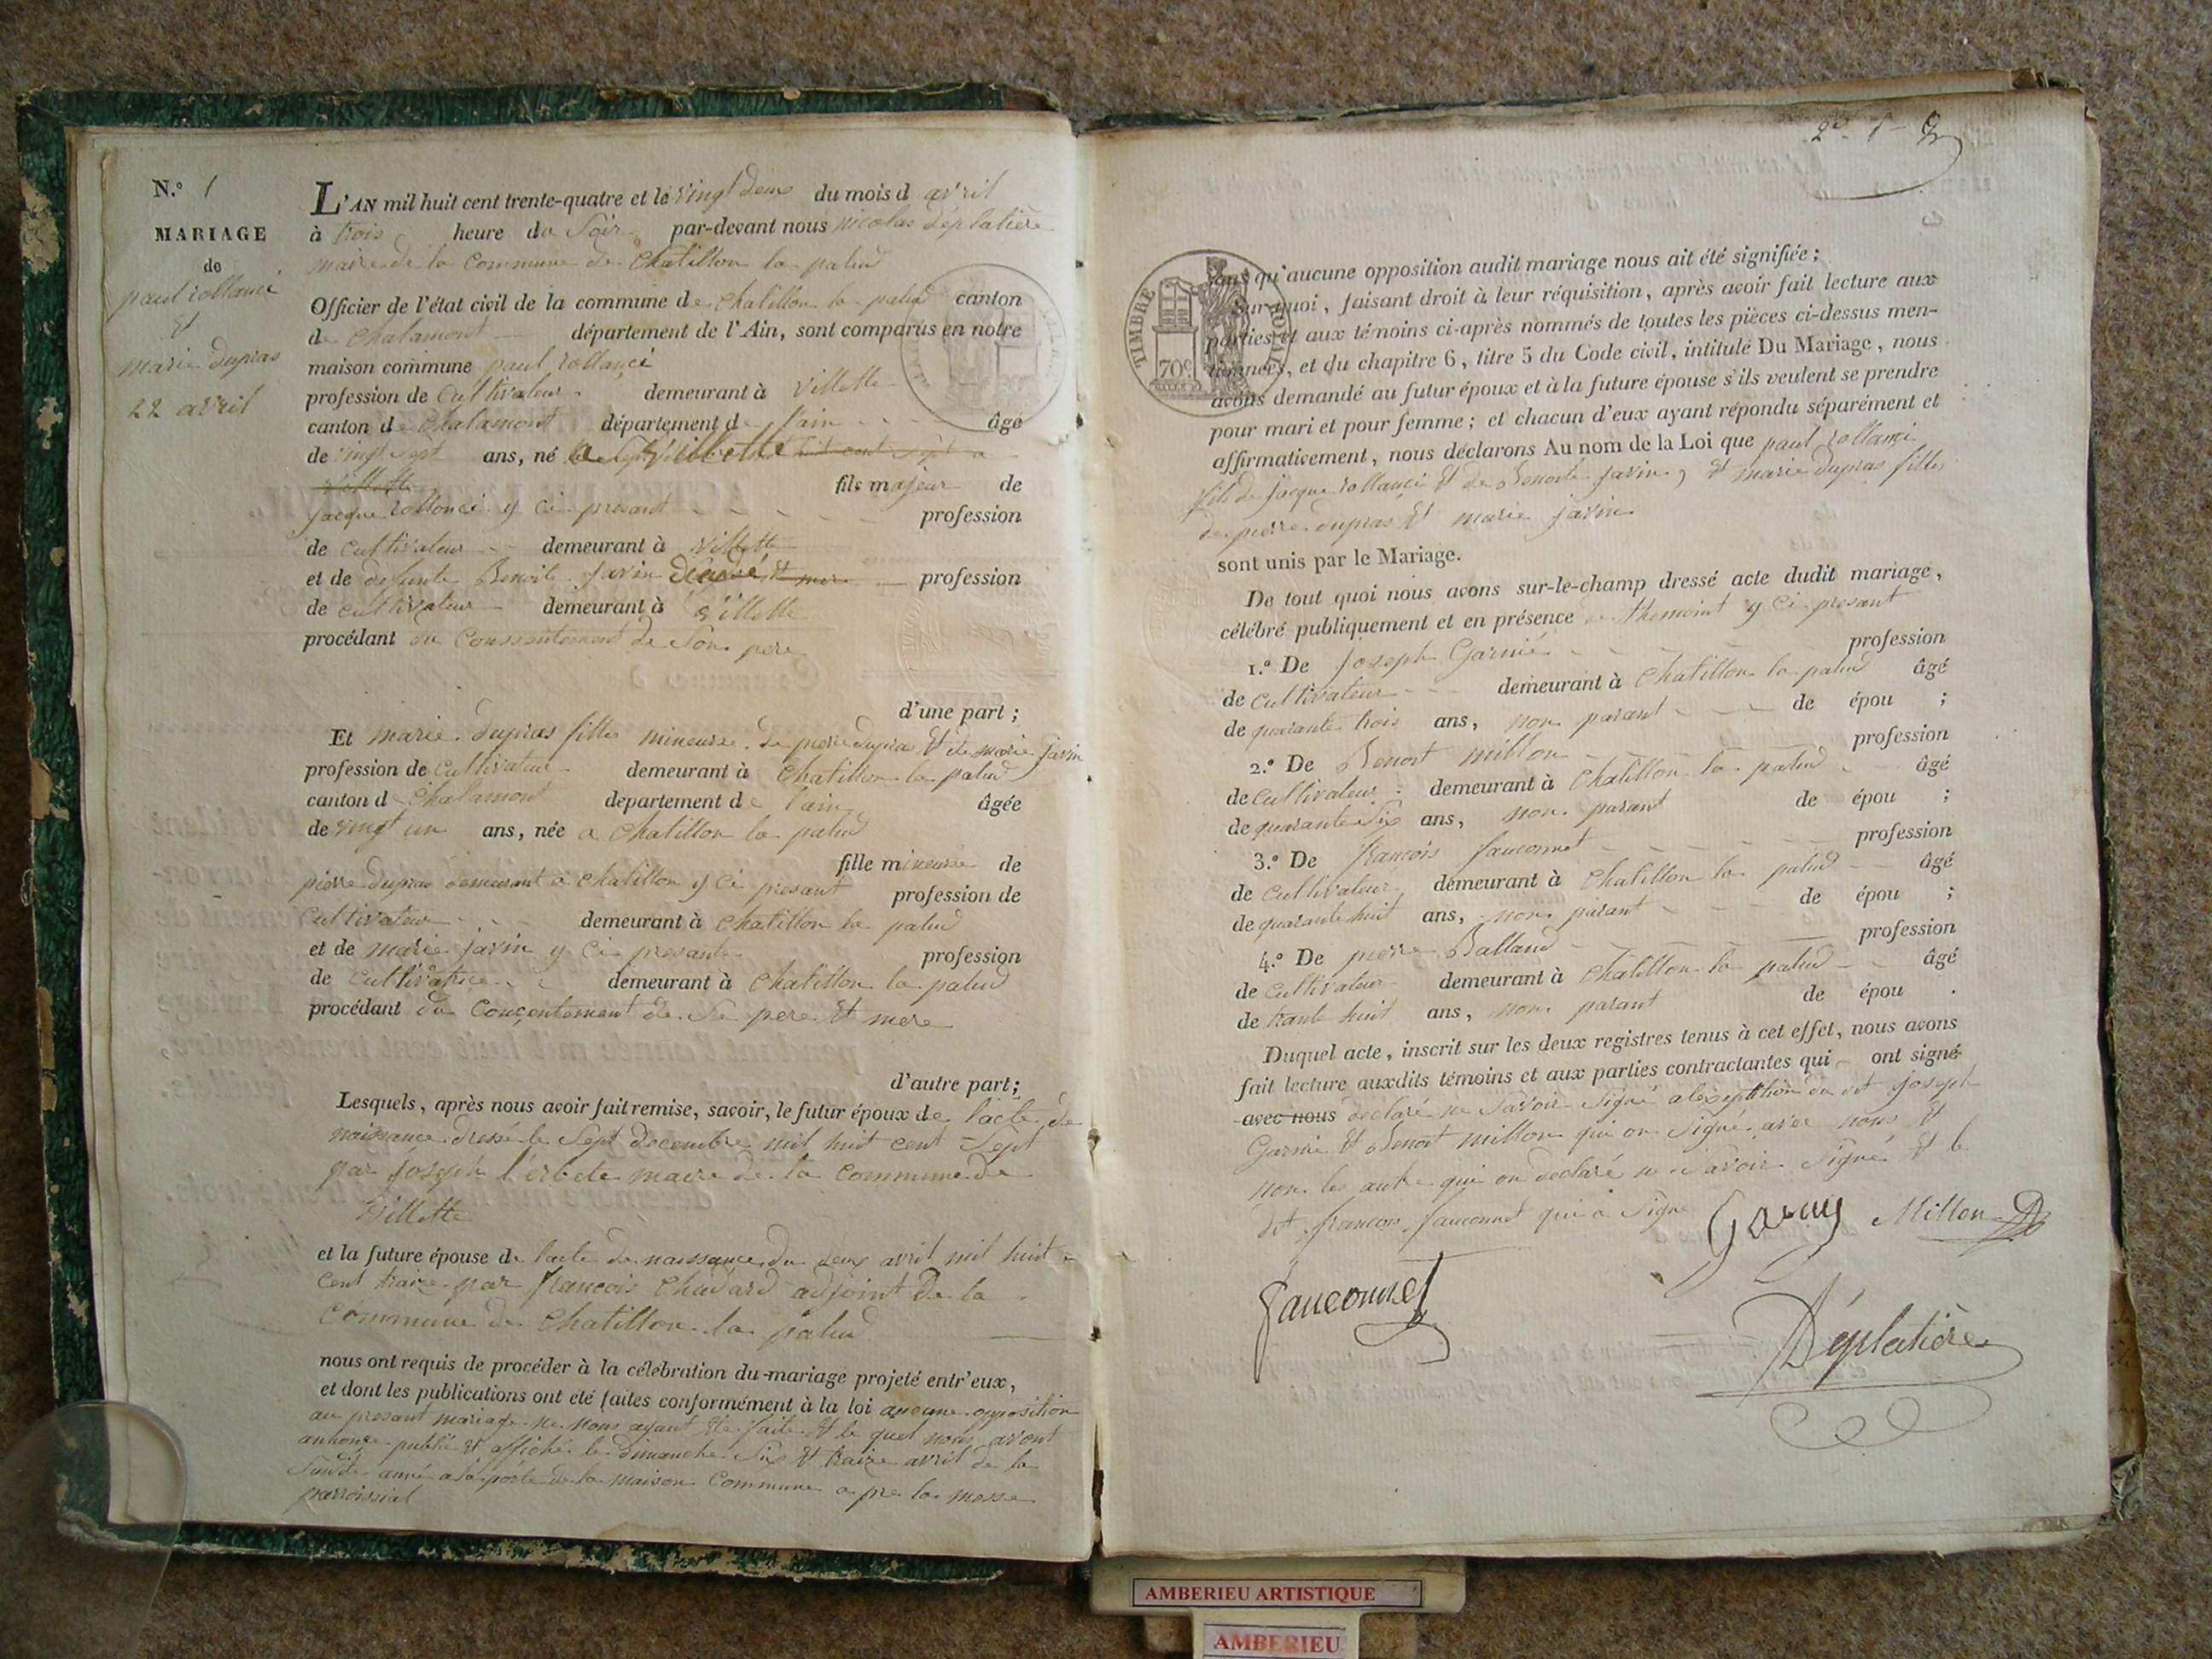 N.º 1
MARIAGE
de
paul rollanci
Et
marie dupras
22 avril
L'AN mil huit cent trente-quatre et le vingt deux du mois d avril
à trois heure du Soir par-devant nous nicolas déplatière
maire de la Commune de Chatillon la palud
Officier de l'état civil de la commune de Chatillon la palud canton
de Chalamont département de l'Ain, sont comparus en notre
maison commune paul rollanci
profession de Cultivateur demeurant à Villette
canton de Chalamont département de l'ain âgé
de vingt sept ans, né a Villette huit cent sept a
villette fils majeur de
jacque rollonci y ci presant profession
de cultivateur demeurant à Villette
et de defunte Benoite Javin mere profession
de cultivateur demeurant à villette
procédant du Conssentement de Son pere
d'une part ;
Et marie dupras fille mineurse de pierre dupras Et de marie Javin
profession de Cultivateur demeurant à Chatillon la palud
canton de Chalamont departement de l'ain âgée
de vingt un ans, née a Chatillon la palud
fille mineurse de
pierre dupras demeurant a chatillon y ci presant profession de
Cultivateur demeurant à Chatillon la palud
et de marie javin y ci presante profession
de Cultivatrice demeurant à Chatillon la palud
procédant du Conçentement de Se pere Et mere
d'autre part ;
Lesquels, après nous avoir fait remise, savoir, le futur époux de l'acte de
naissance dressé le Sept decembre mil huit cent Sept
par joseph maire de la Commune de
Villette
et la future épouse de l'acte de naissance du deux avril mil huit
cent traize par françois Chavard adjoint de la
Commune de Chatillon la palud
nous ont requis de procéder à la célébration du mariage projeté entr'eux,
et dont les publications ont eté faites conformément à la loi aucune opposition
au presant mariage ne nous ayant Ete faite Et le quel nous avont
annonçe publié Et affiché le dimanche Six Et traize avril de la
Susdite anné a la porte de la maison Commune a pre la messe
parroissial
2e 1
TIMBRE ROYAL
70c
sans qu'aucune opposition audit mariage nous ait été signifiée ;
Sur quoi, faisant droit à leur réquisition, après avoir fait lecture aux
parties et aux témoins ci-après nommés de toutes les pièces ci-dessus men-
tionnées, et du chapitre 6, titre 5 du Code civil, intitulé Du Mariage, nous
avons demandé au futur époux et à la future épouse s'ils veulent se prendre
pour mari et pour femme ; et chacun d'eux ayant répondu séparément et
affirmativement, nous déclarons Au nom de la Loi que paul rollanci
fils de jacque rollanci Et de Benoite javin, Et marie dupras fille
de pierre dupras Et marie javin
sont unis par le Mariage.
De tout quoi nous avons sur-le-champ dressé acte dudit mariage,
célébré publiquement et en présence de themoint y Ci presant
1.º De Joseph Garnié profession
de Cultivateur demeurant à Chatillon la palud âgé
de quarante trois ans, non parant de épou ;
2.º De Benoit millon profession
de Cultivateur demeurant à Chatillon la palud âgé
de quarante Six ans, non parant de épou ;
3.º De françois fauconnet profession
de Cultivateur demeurant à Chatillon la palud âgé
de quarante huit ans, non parant de épou ;
4.º De pierre Balland profession
de Cultivateur demeurant à Chatillon la palud âgé
de trante huit ans, non parant de épou .
Duquel acte, inscrit sur les deux registres tenus à cet effet, nous avons
fait lecture auxdits témoins et aux parties contractantes qui ont signé
avec nous declaré ne Savoir Signé a du dit joseph
Garnié Et Benoit millon qui on Signé avec nous Et
non les autre qui on declaré ne Savoir Signé Et le
dit françois fauconnet qui a Signé
Millon
fauconnet
Déplatière
AMBERIEU ARTISTIQUE
AMBERIEU